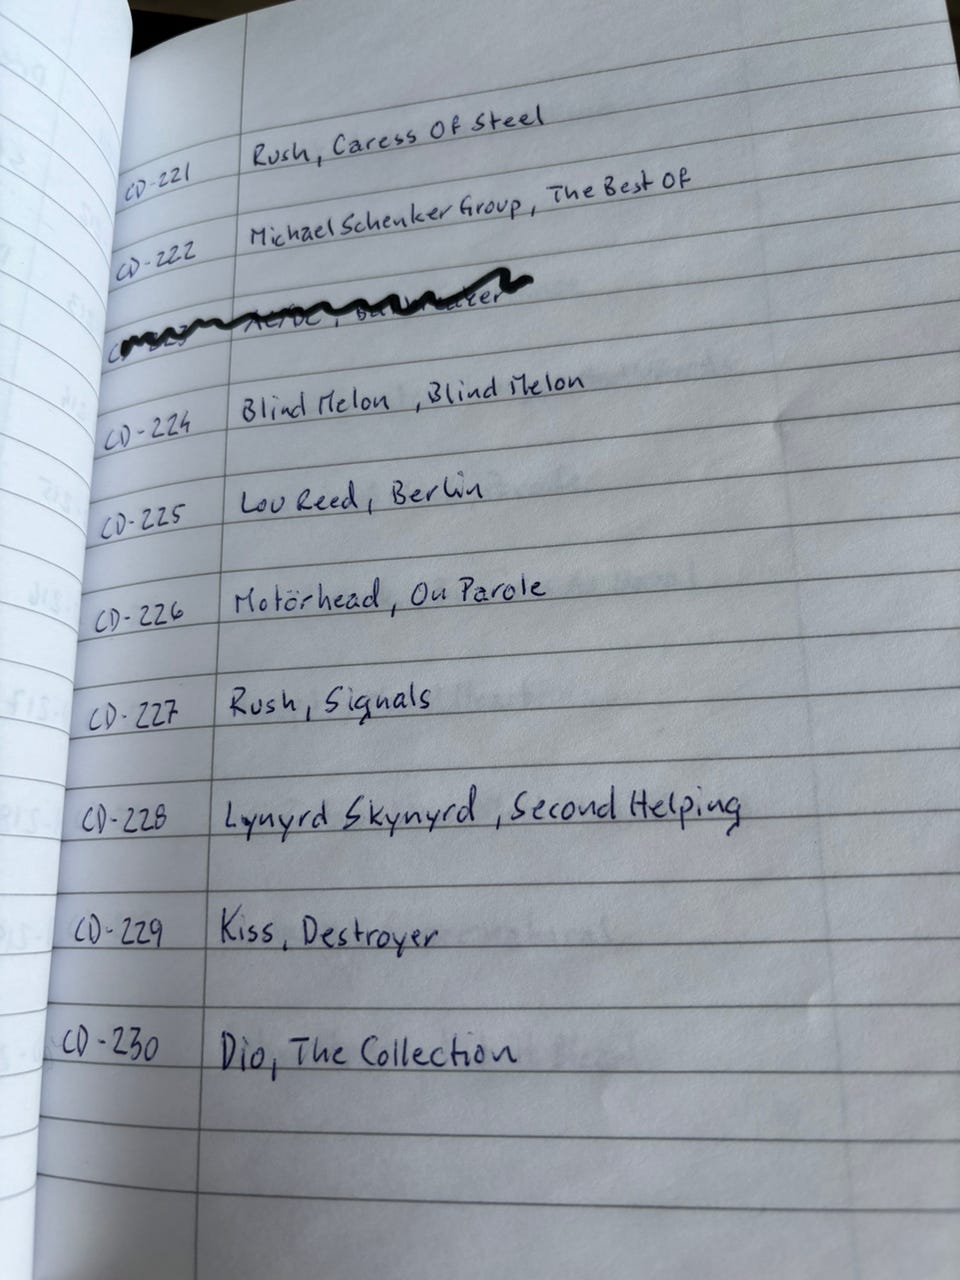 CD-221 Rush, Caress Of Steel
CD-222 Michael Schenker Group, The Best Of
CD-224 Blind Melon, Blind Melon
CD-225 Lou Reed, Berlin
CD-226 Motörhead, On Parole
CD-227 Rush, Signals
CD-228 Lynyrd Skynyrd, Second Helping
CD-229 Kiss, Destroyer
CD-230 Dio, The Collection